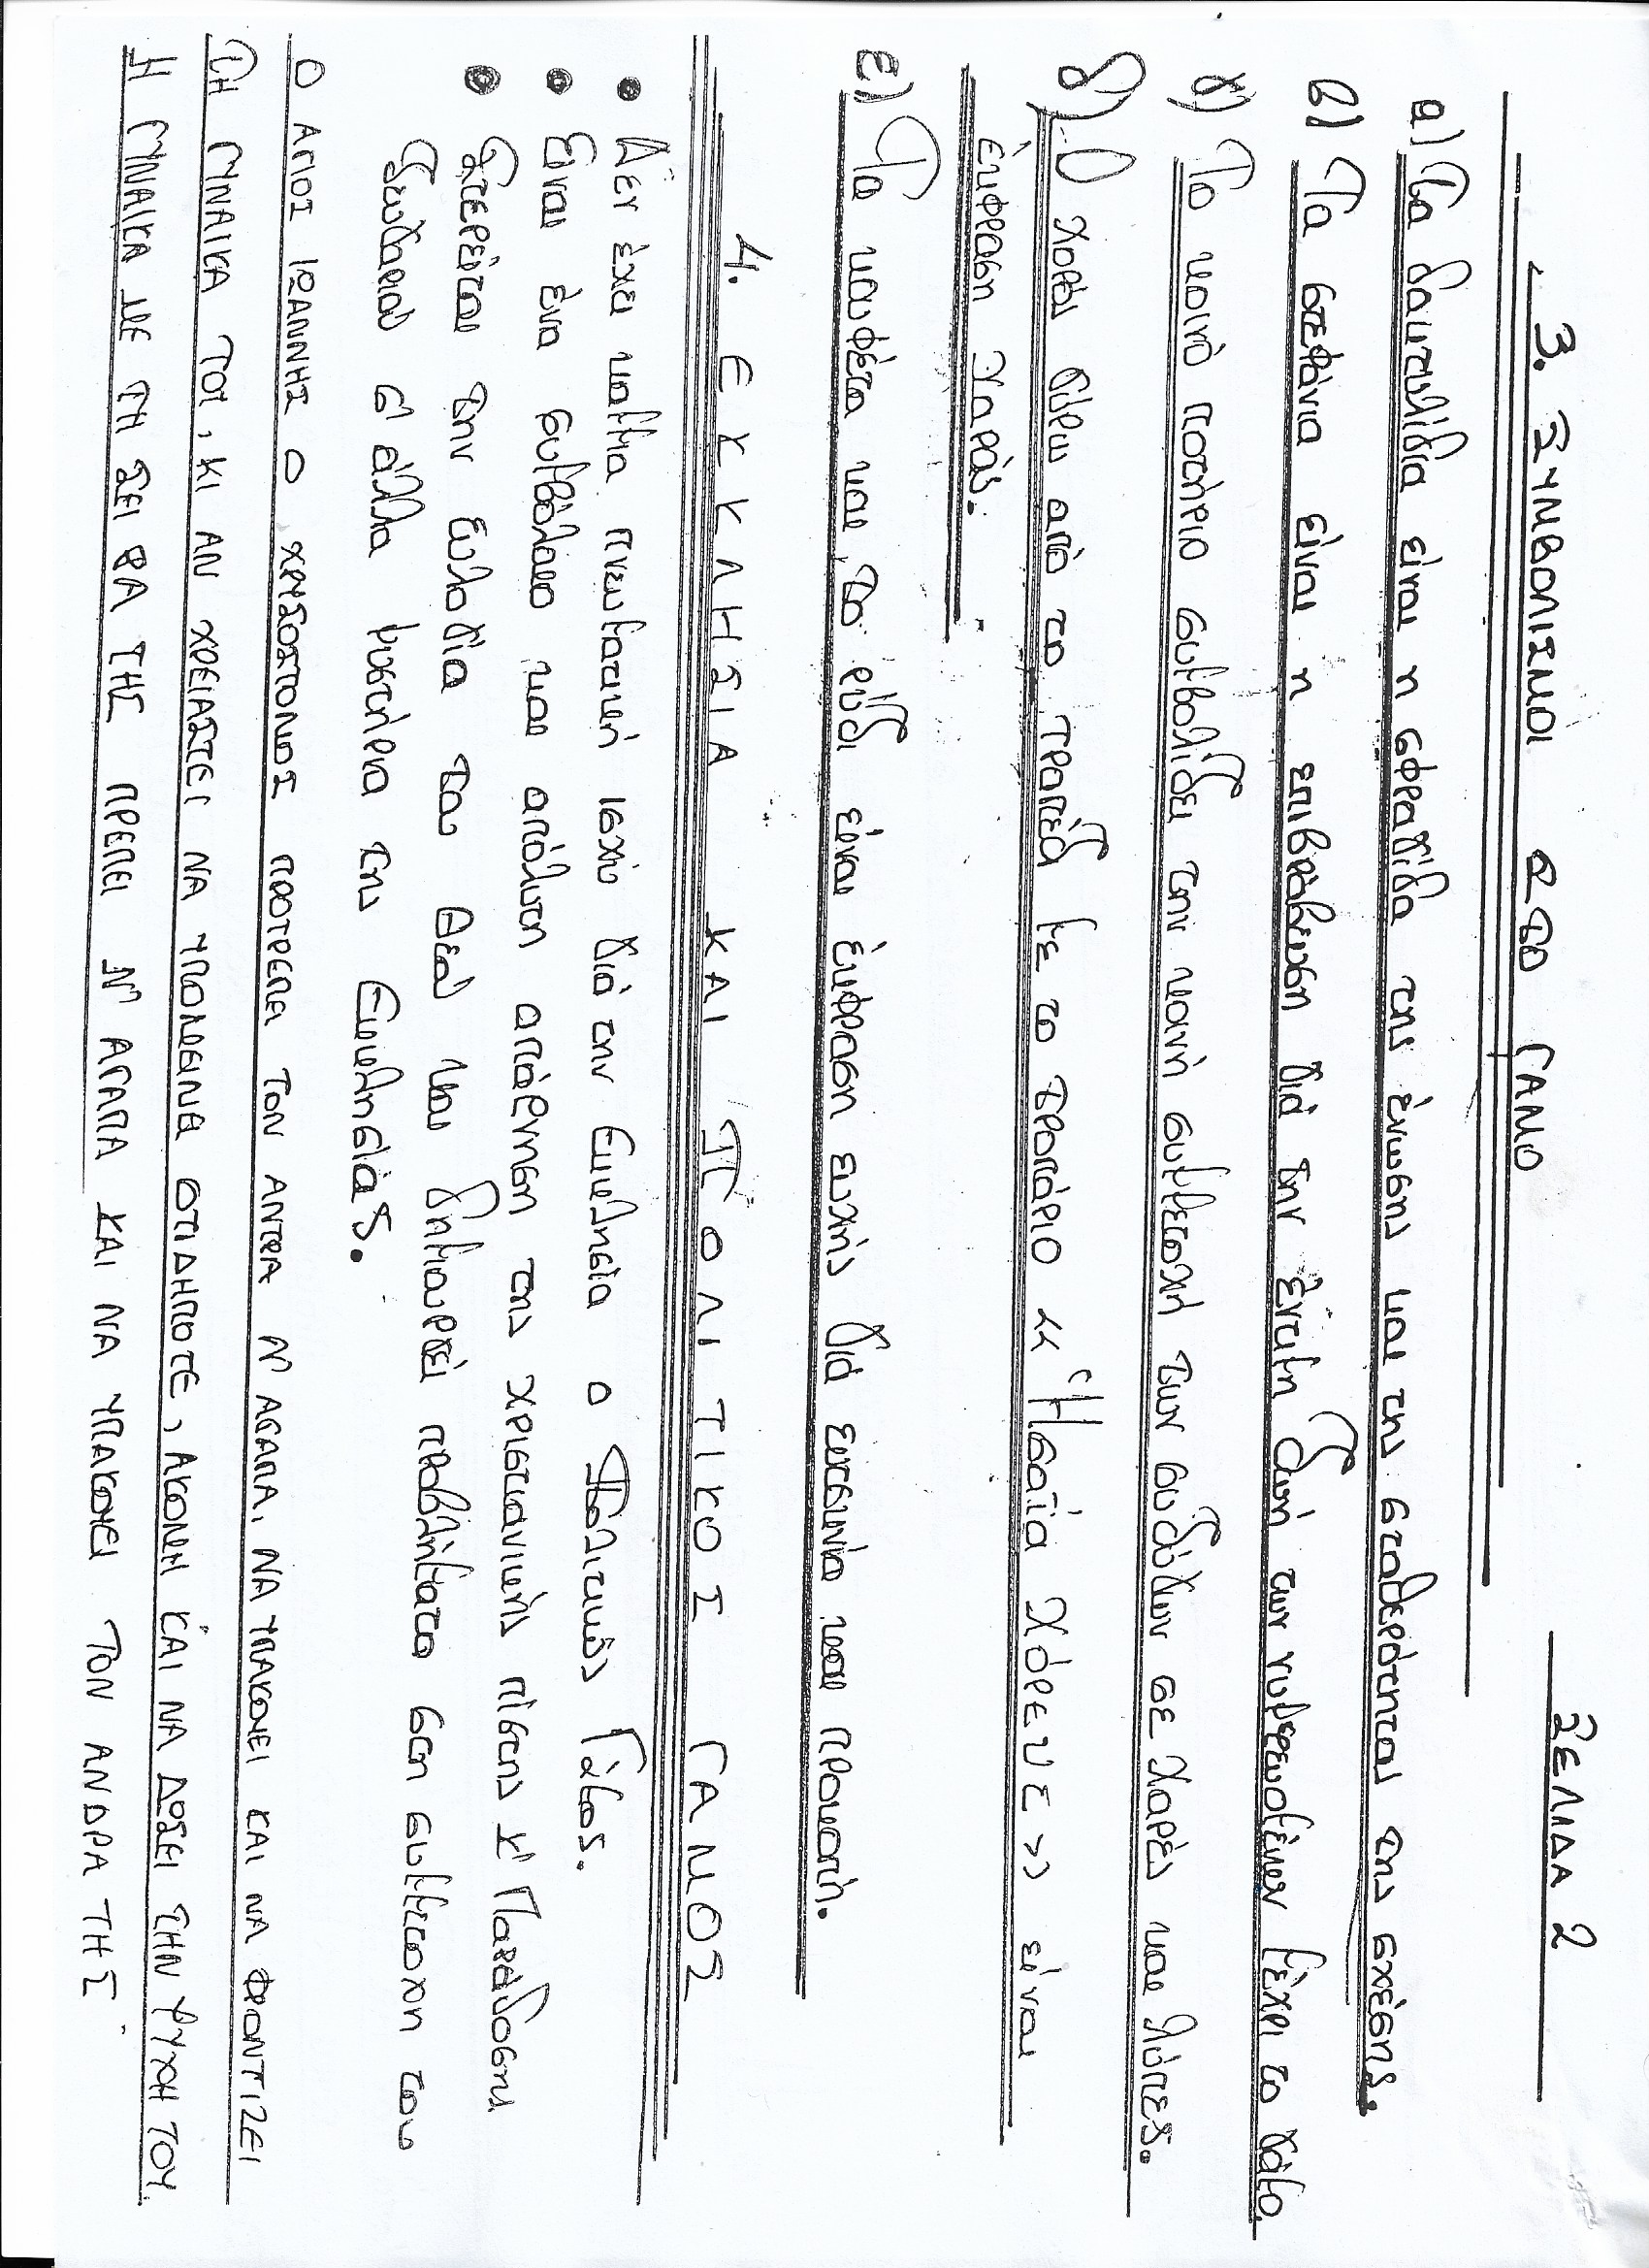 ΣΕΛΙΔΑ 2
3. ΣΥΜΒΟΛΙΣΜΟΙ ΣΤΟ ΓΑΜΟ
α) Τα δαυτυλίδια είναι η σφραγίδα της ένωσης και της σταθερότητας της σχέσης.
β) Τα στεφάνια είναι η επιβράβευση γιά την έντιμη ζωή των νυμφευομένων μέχρι το γάμο.
γ) Το κοινό ποτήριο συμβολίζει την κοινή συμμετοχή των συζύγων σε χαρές και λύπες.
δ) Ο χορός γύρω από το τραπέζι με το τροπάριο «Ησαΐα χόρευε» είναι
έκφραση χαράς.
ε) Τα κουφέτα και το ρύζι είναι έκφραση ευχής γιά ευτυχία και προκοπή.
4. ΕΚΚΛΗΣΙΑ ΚΑΙ ΠΟΛΙΤΙΚΟΣ ΓΑΜΟΣ
• Δεν έχει καμμιά πνευματική ισχύ γιά την Εκκλησία ο Πολιτικός Γάμος.
• Είναι ένα συμβόλαιο και απόλυτη απάρνηση της χριστιανικής πίστης κ' Παράδοσης
• Στερείται την ευλογία του Θεού και δημιουργεί προβλήματα στη συμμετοχη του
ζευγαριού σ' άλλα μυστήρια της Εκκλησίας.
Ο ΑΓΙΟΣ ΙΩΑΝΝΗΣ Ο ΧΡΥΣΟΣΤΟΜΟΣ ΠΡΟΤΡΕΠΕΙ ΤΟΝ ΑΝΤΡΑ Ν' ΑΓΑΠΑ, ΝΑ ΥΠΑΚΟΥΕΙ ΚΑΙ ΝΑ ΦΡΟΝΤΙΖΕΙ
ΤΗ ΓΥΝΑΙΚΑ ΤΟΥ, ΚΙ ΑΝ ΧΡΕΙΑΣΤΕΙ ΝΑ ΥΠΟΜΕΙΝΕΙ ΟΤΙΔΗΠΟΤΕ, ΑΚΟΜΗ ΚΑΙ ΝΑ ΔΩΣΕΙ ΤΗΝ ΨΥΧΗ ΤΟΥ.
Η ΓΥΝΑΙΚΑ ΜΕ ΤΗ ΣΕΙΡΑ ΤΗΣ ΠΡΕΠΕΙ Ν' ΑΓΑΠΑ ΚΑΙ ΝΑ ΥΠΑΚΟΥΕΙ ΤΟΝ ΑΝΔΡΑ ΤΗΣ